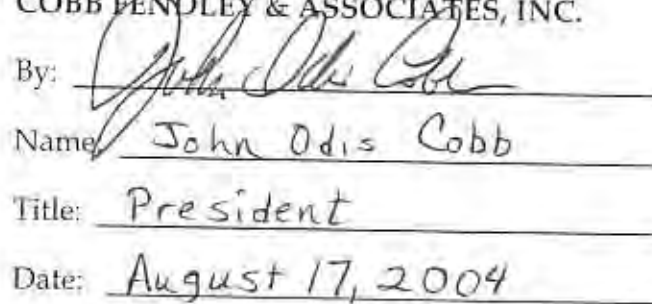 COBB FENDLEY & ASSOCIATES, INC.
By: John Odis Cobb
Name John Odis Cobb
Title: President
Date: August 17, 2004